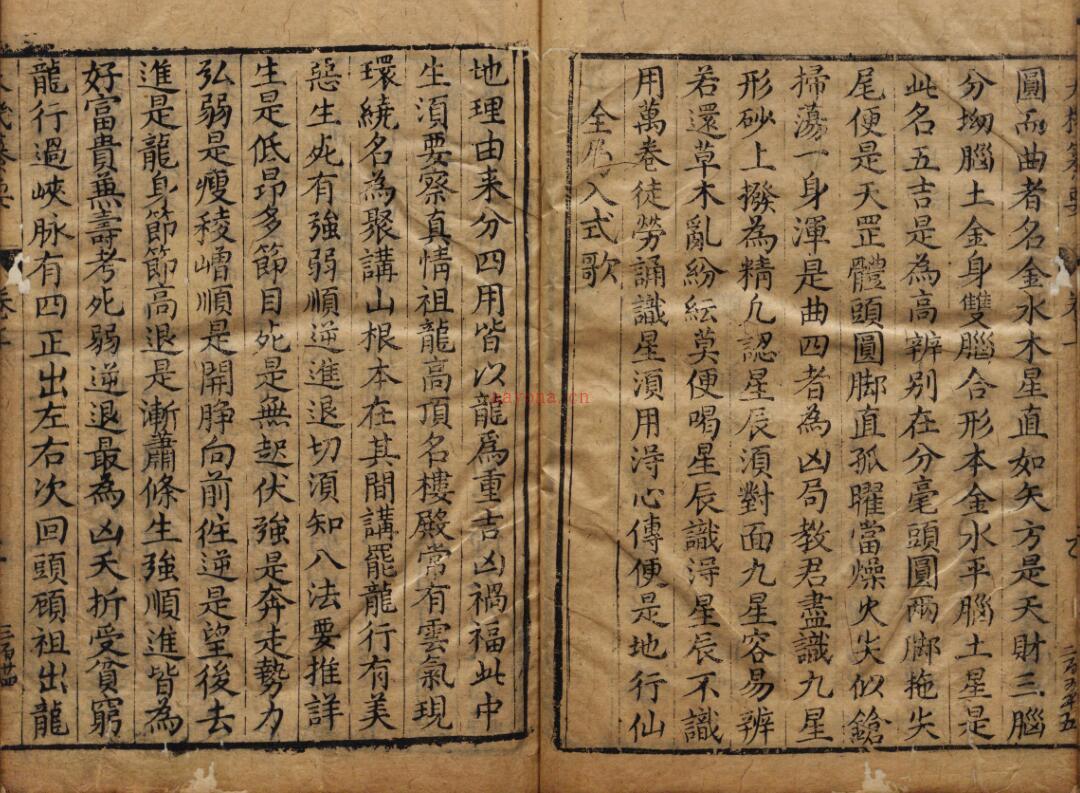 圓而曲者名金水木星直如矢方是天財三腦
分坳腦土金身雙腦合形本金水平腦土星是
此名五吉是為高辨別在分毫頭圓兩脚拖尖
尾便是天罡體頭圓脚直孤曜當燥火尖似鎗
掃蕩一身渾是曲四者為凶局教君盡識九星
形砂上撥為精凢認星辰湏對面九星容易辨
若還草木亂紛紜莫便喝星辰識淂星辰不識
用萬卷徒勞誦識星湏用淂心傳便是地行仙
入式歌
地理由来分四用皆以龍爲重吉凶禍福此中
生須要察真情祖龍高頂名樓殿常有雲氣現
環繞名為聚講山根本在其間講罷龍行有美
惡生死有強弱順逆進退切須知八法要推詳
生是低昂多節目死是無起伏強是奔走勢力
弘弱是瘦稜嶒順是開睁向前往逆是望後去
進是龍身節節高退是漸蕭條生強順進皆為
好富貴兼壽考死弱逆退最為凶夭折受貧窮
龍行過峽脉有四正出左右次回頭顧祖出龍
narona.cn